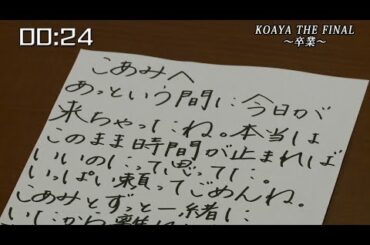 00:24
KOAYA THE FINAL
～卒業～
こあみへ
あっという間に今日が
来ちゃったね。本当は
このまま時間が止まれば
いいのにって思ってた。
いっぱい頼ってごめんね。
こあみとずっと一緒に